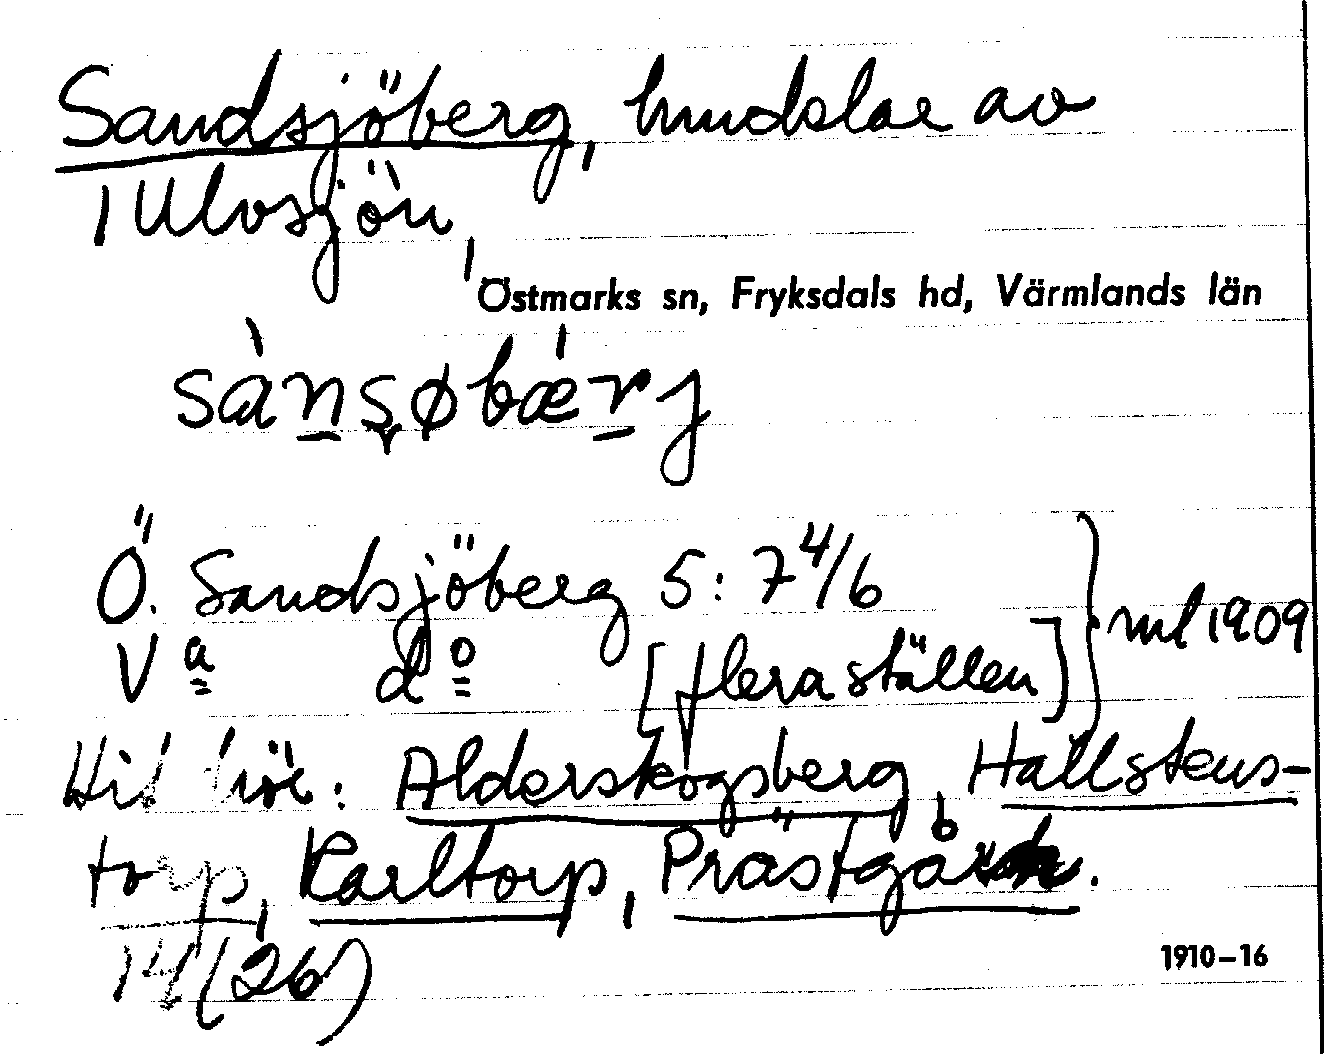 Sandsjöberg, hmdslae av
1 Ulvsjön,
Östmarks sn, Fryksdals hd, Värmlands län
sànsøbǽrj
Ö. Sandsjöberg 5: 7 4/6 } ml 1909
Va do [flera ställen]
Hit hör: Alderskogsberg, Hallstens-
torp, Karltorp, Prästgård.
14 (26)
1910–16